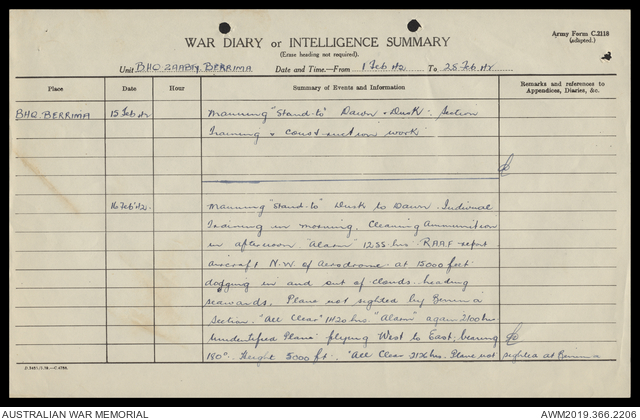 Army Form C.2118
(adapted.)
WAR DIARY or INTELLIGENCE SUMMARY
(Erase heading not required).
Unit BHQ 2AABty BERRIMA Date and Time—From 1 Feb 42 To 28 Feb 42
Place Date Hour Summary of Events and Information Remarks and references to Appendices, Diaries, &c.
BHQ BERRIMA 15 Feb 42 Manning "Stand-to" Dawn & Dusk. Section
Training & construction work
16 Feb 42. Manning "Stand-to" Dusk to Dawn.
Training in morning. Cleaning Ammunition
in afternoon. "Alarm" 1235 hrs RAAF report
aircraft N.W. of Aerodrome at 15000 feet
dodging in and out of clouds heading
seawards. Plane not sighted by Berrima
Section. "All Clear" 1420 hrs. "Alarm" again 2100 hrs
Unidentified Plane flying West to East, bearing
180°. Height 5000 ft. "All Clear 2126 hrs. Plane not sighted at Berrima
AUSTRALIAN WAR MEMORIAL
AWM2019.366.2206